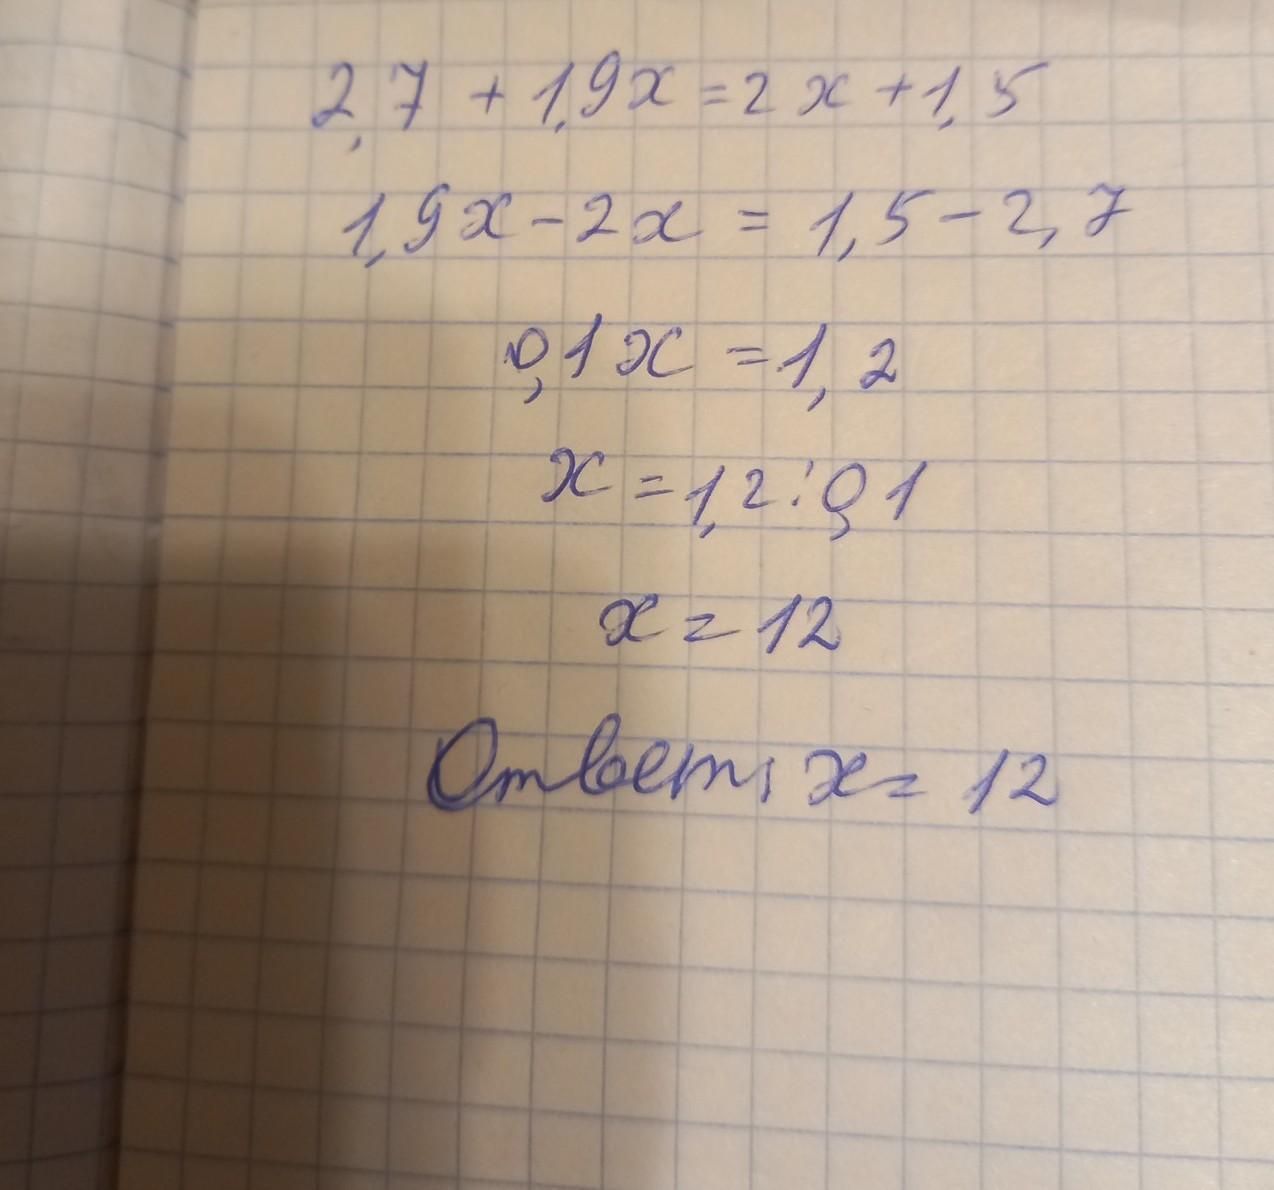 2,7 + 1,9x = 2x + 1,5
1,9x - 2x = 1,5 - 2,7
0,1x = 1,2
x = 1,2 : 0,1
x = 12
Ответ: x = 12